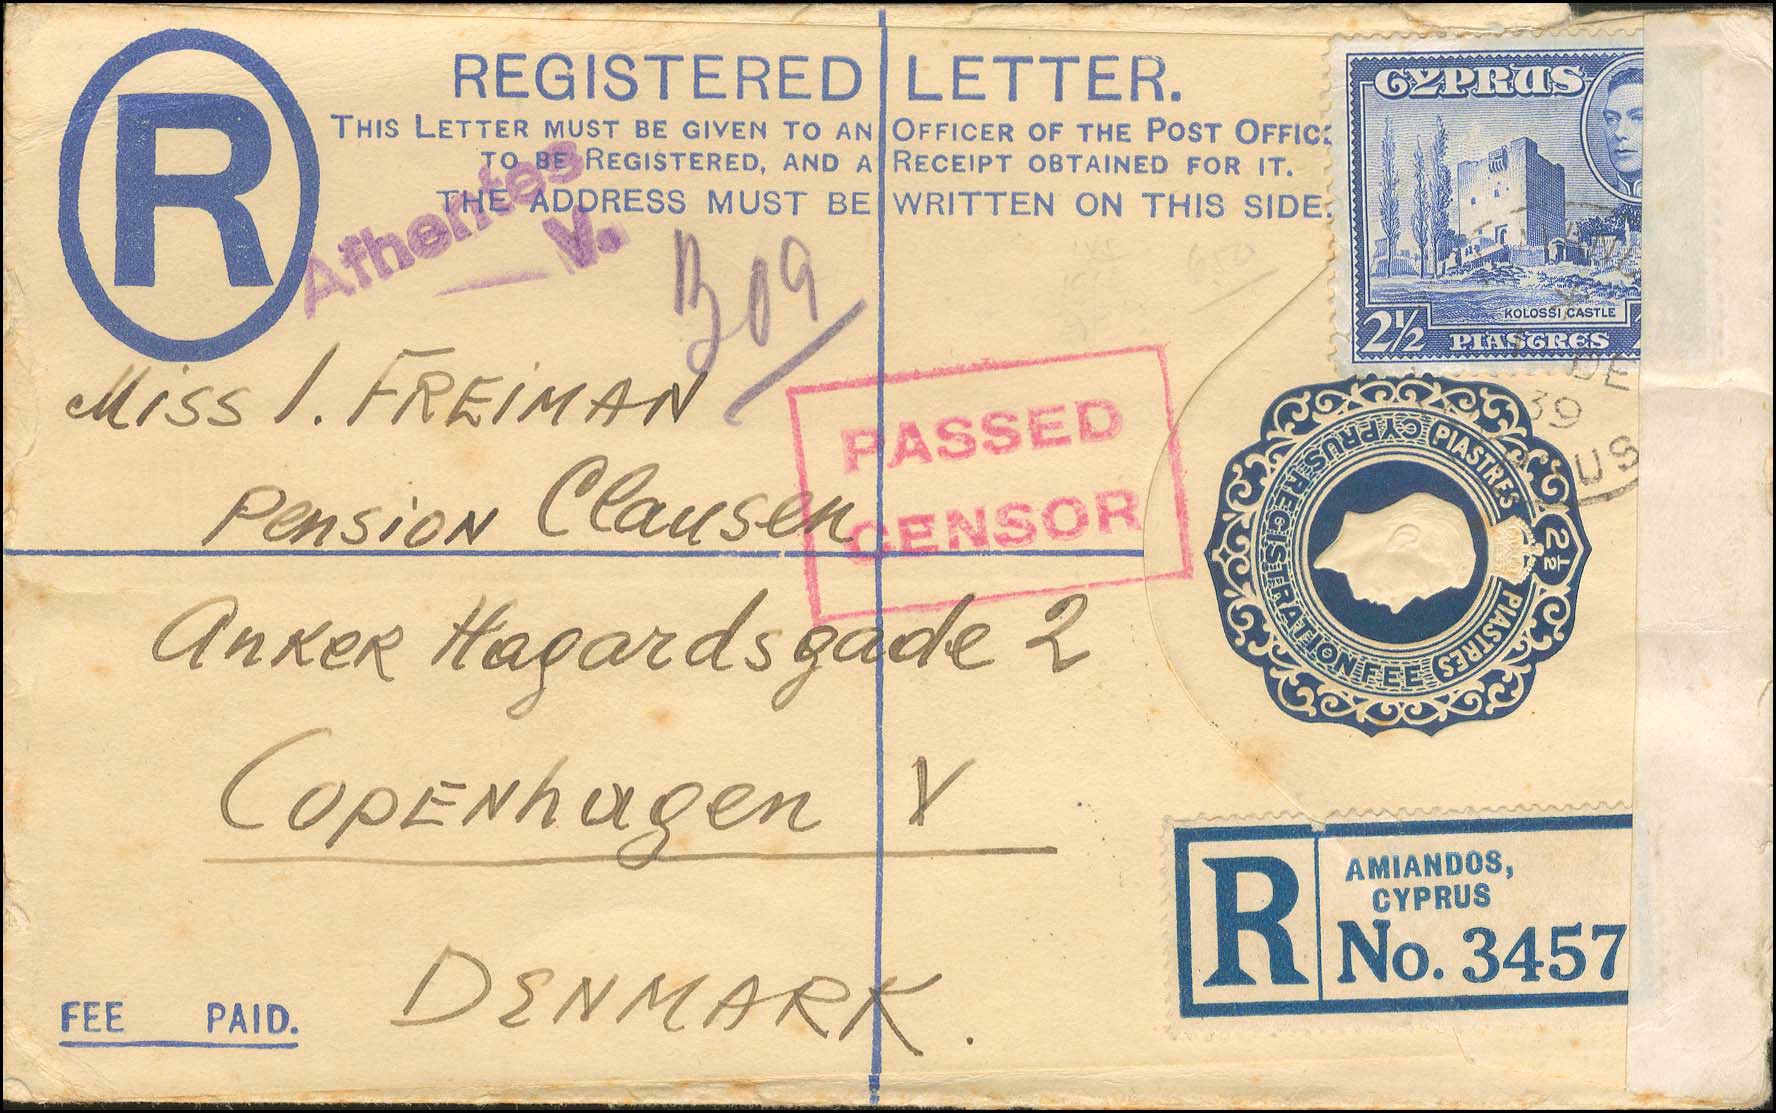 R
REGISTERED LETTER.
THIS LETTER MUST BE GIVEN TO AN OFFICER OF THE POST OFFICE
TO BE REGISTERED, AND A RECEIPT OBTAINED FOR IT.
THE ADDRESS MUST BE WRITTEN ON THIS SIDE.
Afhentes
V.
309
CYPRUS
KOLOSSI CASTLE
2½ PIASTRES
DE
39
US
Miss I. FREIMAN
Pension Clausen
PASSED
CENSOR
Anker Hagardsgade 2
Copenhagen V
DENMARK.
CYPRUS REGISTRATION FEE
PIASTRES 2½ PIASTRES
R
AMIANDOS,
CYPRUS
No. 3457
FEE PAID.